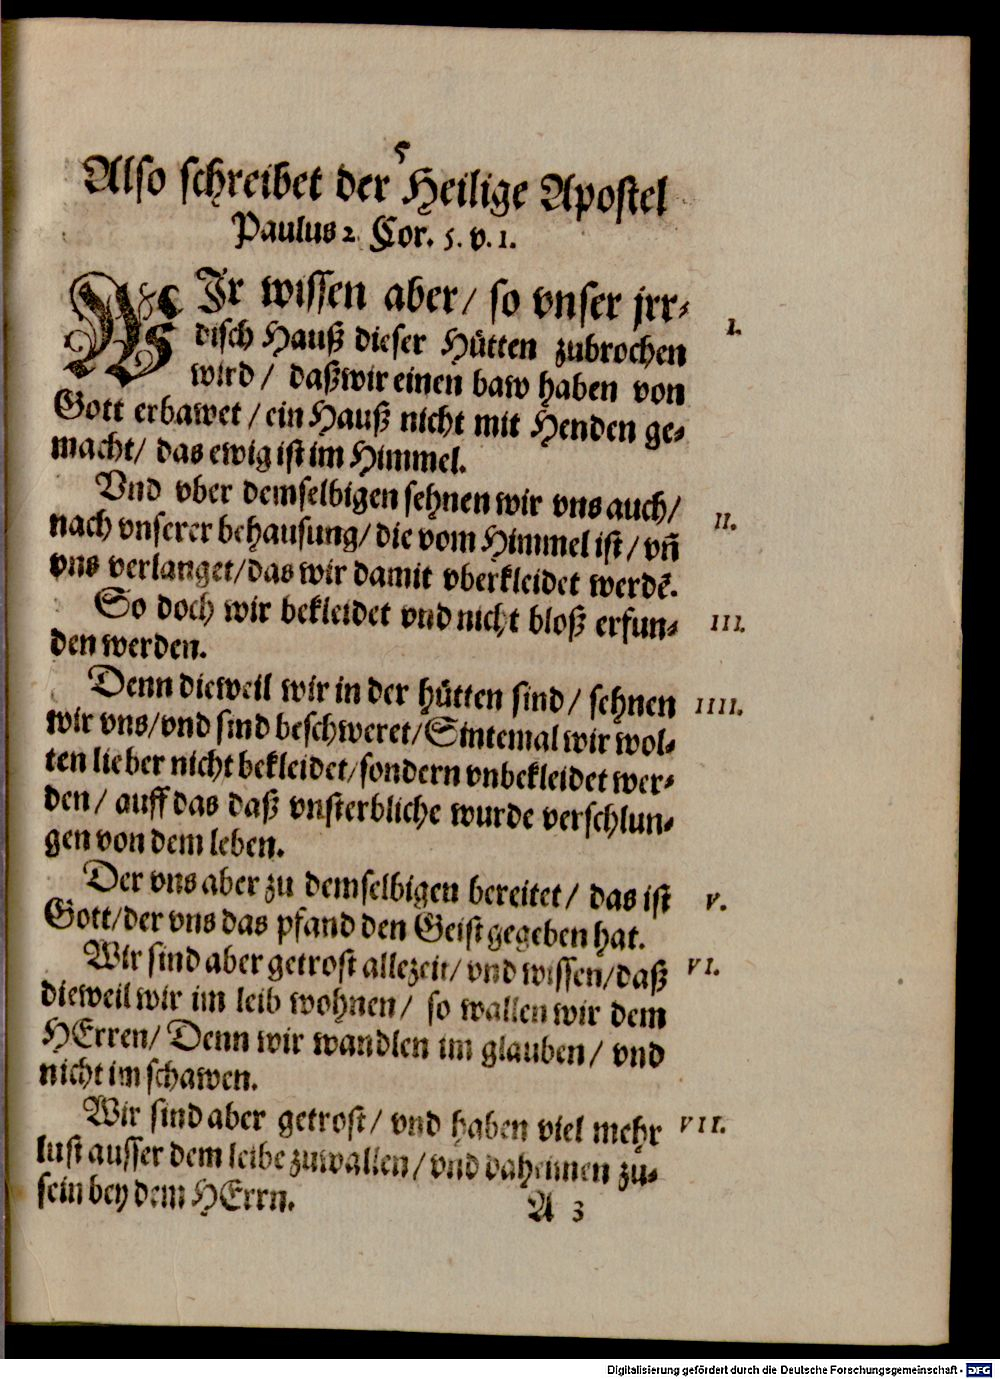 5
Also schreibet der Heilige Apostel
Paulus 2. Cor. 5. v. 1.
WIr wissen aber/ so vnser jrr-
disch Hauß dieser Hütten zubrochen
wird/ daßwir einen baw haben von
Gott erbawet/ ein Hauß nicht mit Henden ge-
macht/ das ewig ist im Himmel.
I.
Vnd vber demselbigen sehnen wir vns auch/
nach vnserer behausung/ die vom Himmel ist/ vñ
vns verlanget/ das wir damit vberkleidet werdẽ.
II.
So doch wir bekleidet vnd nicht bloß erfun-
den werden.
III.
Denn dieweil wir in der hütten sind/ sehnen
wir vns/ vnd sind beschweret/ Sintemal wir wol-
ten lieber nicht bekleidet/ sondern vnbekleidet wer-
den/ auff das daß vnsterbliche wurde verschlun-
gen von dem leben.
IIII.
Der vns aber zu demselbigen bereitet/ das ist
Gott/ der vns das pfand den Geist gegeben hat.
V.
Wir sind aber getrost allezeit/ vnd wissen/ daß
dieweil wir im leib wohnen/ so wallen wir dem
HErren/ Denn wir wandlen im glauben/ vnd
nicht im schawen.
VI.
Wir sind aber getrost/ vnd haben viel mehr
lust ausser dem leibe zuwallen/ vnd daheimen zu-
sein bey dem HErrn.
VII.
A 3
Digitalisierung gefördert durch die Deutsche Forschungsgemeinschaft - DFG